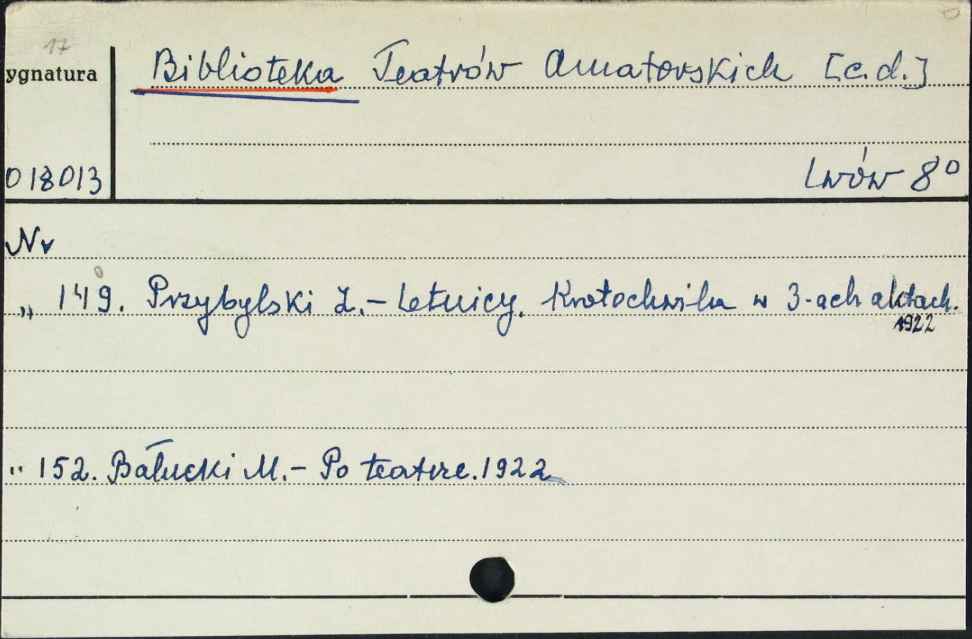 17
ygnatura Biblioteka Teatrów Amatorskich [c.d.]
018013 Lwów 8⁰
Nr
„ 149. Przybylski Z. – Letnicy. Krotochwila w 3-ach aktach.
1922
„ 152. Bałucki M. – Po teatrze. 1922